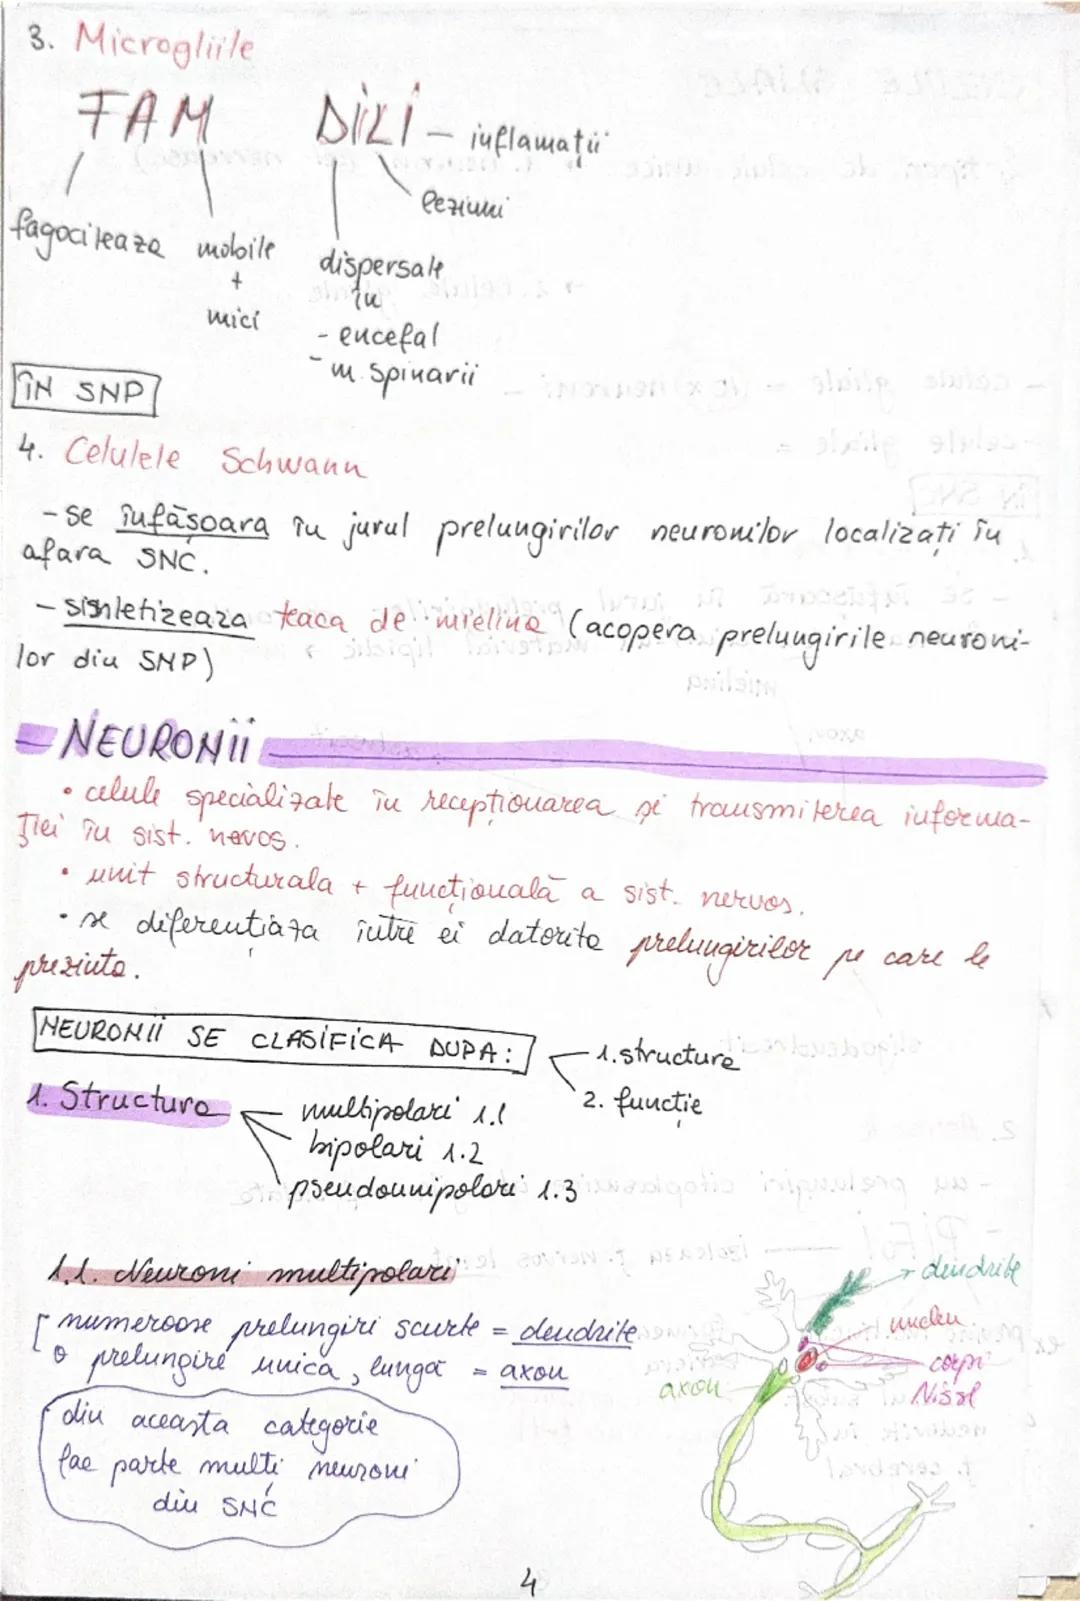 3. Microgliile
FAM DILI - inflamații
leziuni
fagociteaza mobile dispersate
+ în
mici - encefal
- m. spinarii
ÎN SNP
4. Celulele Schwann
- se înfășoara în jurul prelungirilor neuronilor localizați în
afara SNC.
- sintetizeaza teaca de mielina (acopera prelungirile neuroni-
lor din SNP)
- NEURONII
• celule specializate în recepționarea și transmiterea informa-
ției în sist. nervos.
• unit structurala + funcțională a sist. nervos.
• se diferențiaza între ei datorita prelungirilor pe care le
prezinta.
NEURONII SE CLASIFICA DUPA: 1. structura
2. funcție
1. Structura multipolari 1.1
bipolari 1.2
pseudounipolari 1.3
1.1. Neuroni multipolari
numeroase prelungiri scurte = dendrite
o prelungire unica, lungă = axon
din aceasta categorie
fac parte multi neuroni
din SNC
dendrite
nucleu
corpi
Nissl
axon
4